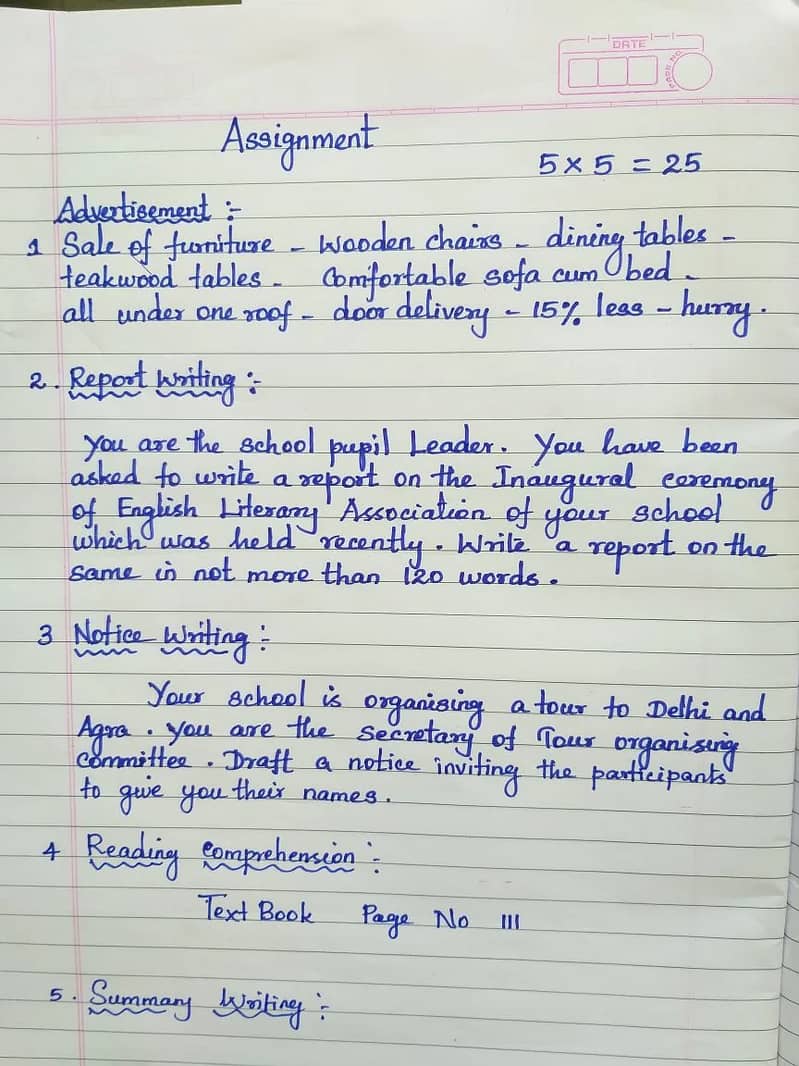 DATE
PAGE NO.
Assignment
5 x 5 = 25
Advertisement :-
1 Sale of furniture - wooden chairs - dining tables -
teakwood tables - Comfortable sofa cum bed -
all under one roof - door delivery - 15% less - hurry.
2. Report Writing :-
You are the school pupil Leader. You have been
asked to write a report on the Inaugural ceremony
of English Literary Association of your school
which was held recently. Write a report on the
same in not more than 120 words.
3 Notice Writing :-
Your school is organising a tour to Delhi and
Agra. You are the Secretary of Tour organising
Committee. Draft a notice inviting the participants
to give you their names.
4 Reading Comprehension :-
Text Book Page No 111
5. Summary Writing :-